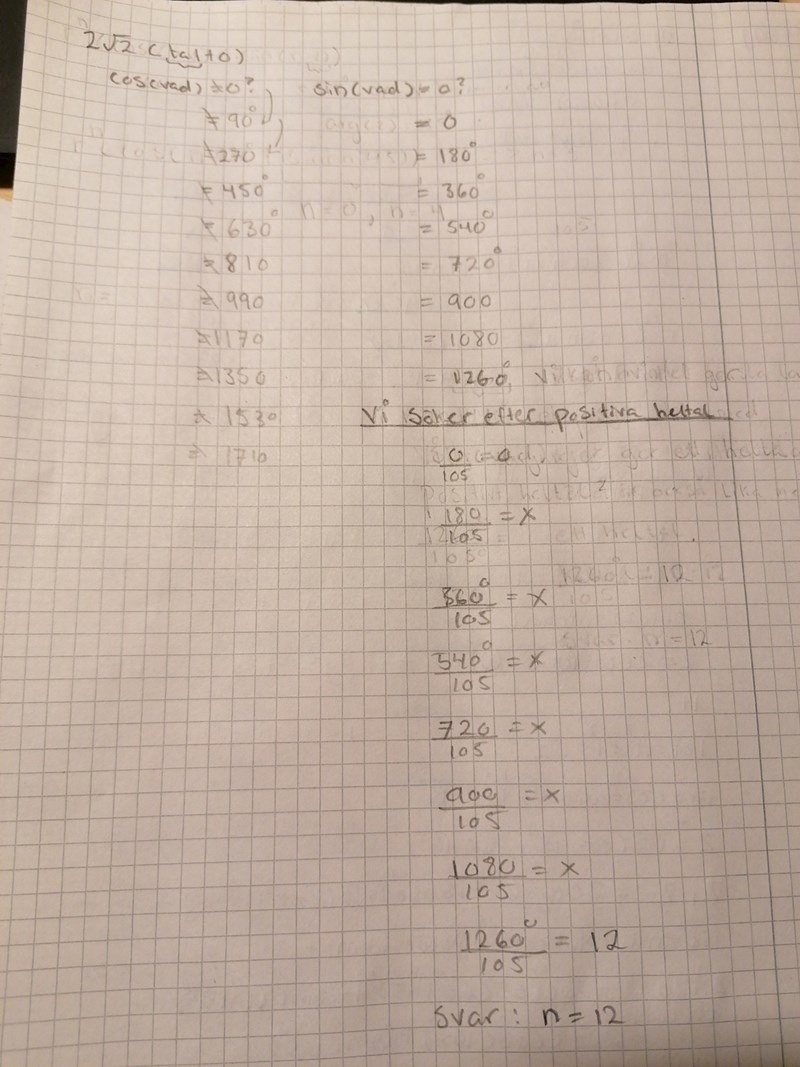 2√2 (tal+0)
cos(vad) ≠ 0? sin(vad) = 0?
≠ 90° = 0
≠ 270 = 180°
≠ 450° = 360°
≠ 630° = 540°
≠ 810 = 720°
≠ 990 = 900
≠ 1170 = 1080
≠ 1350 = 1260°
≠ 1530 Vi söker efter positiva heltal
≠ 1710
0
105
180 = x
105
360° = x
105
540° = x
105
720 = x
105
900 = x
105
1080 = x
105
1260° = 12
105
Svar: n = 12